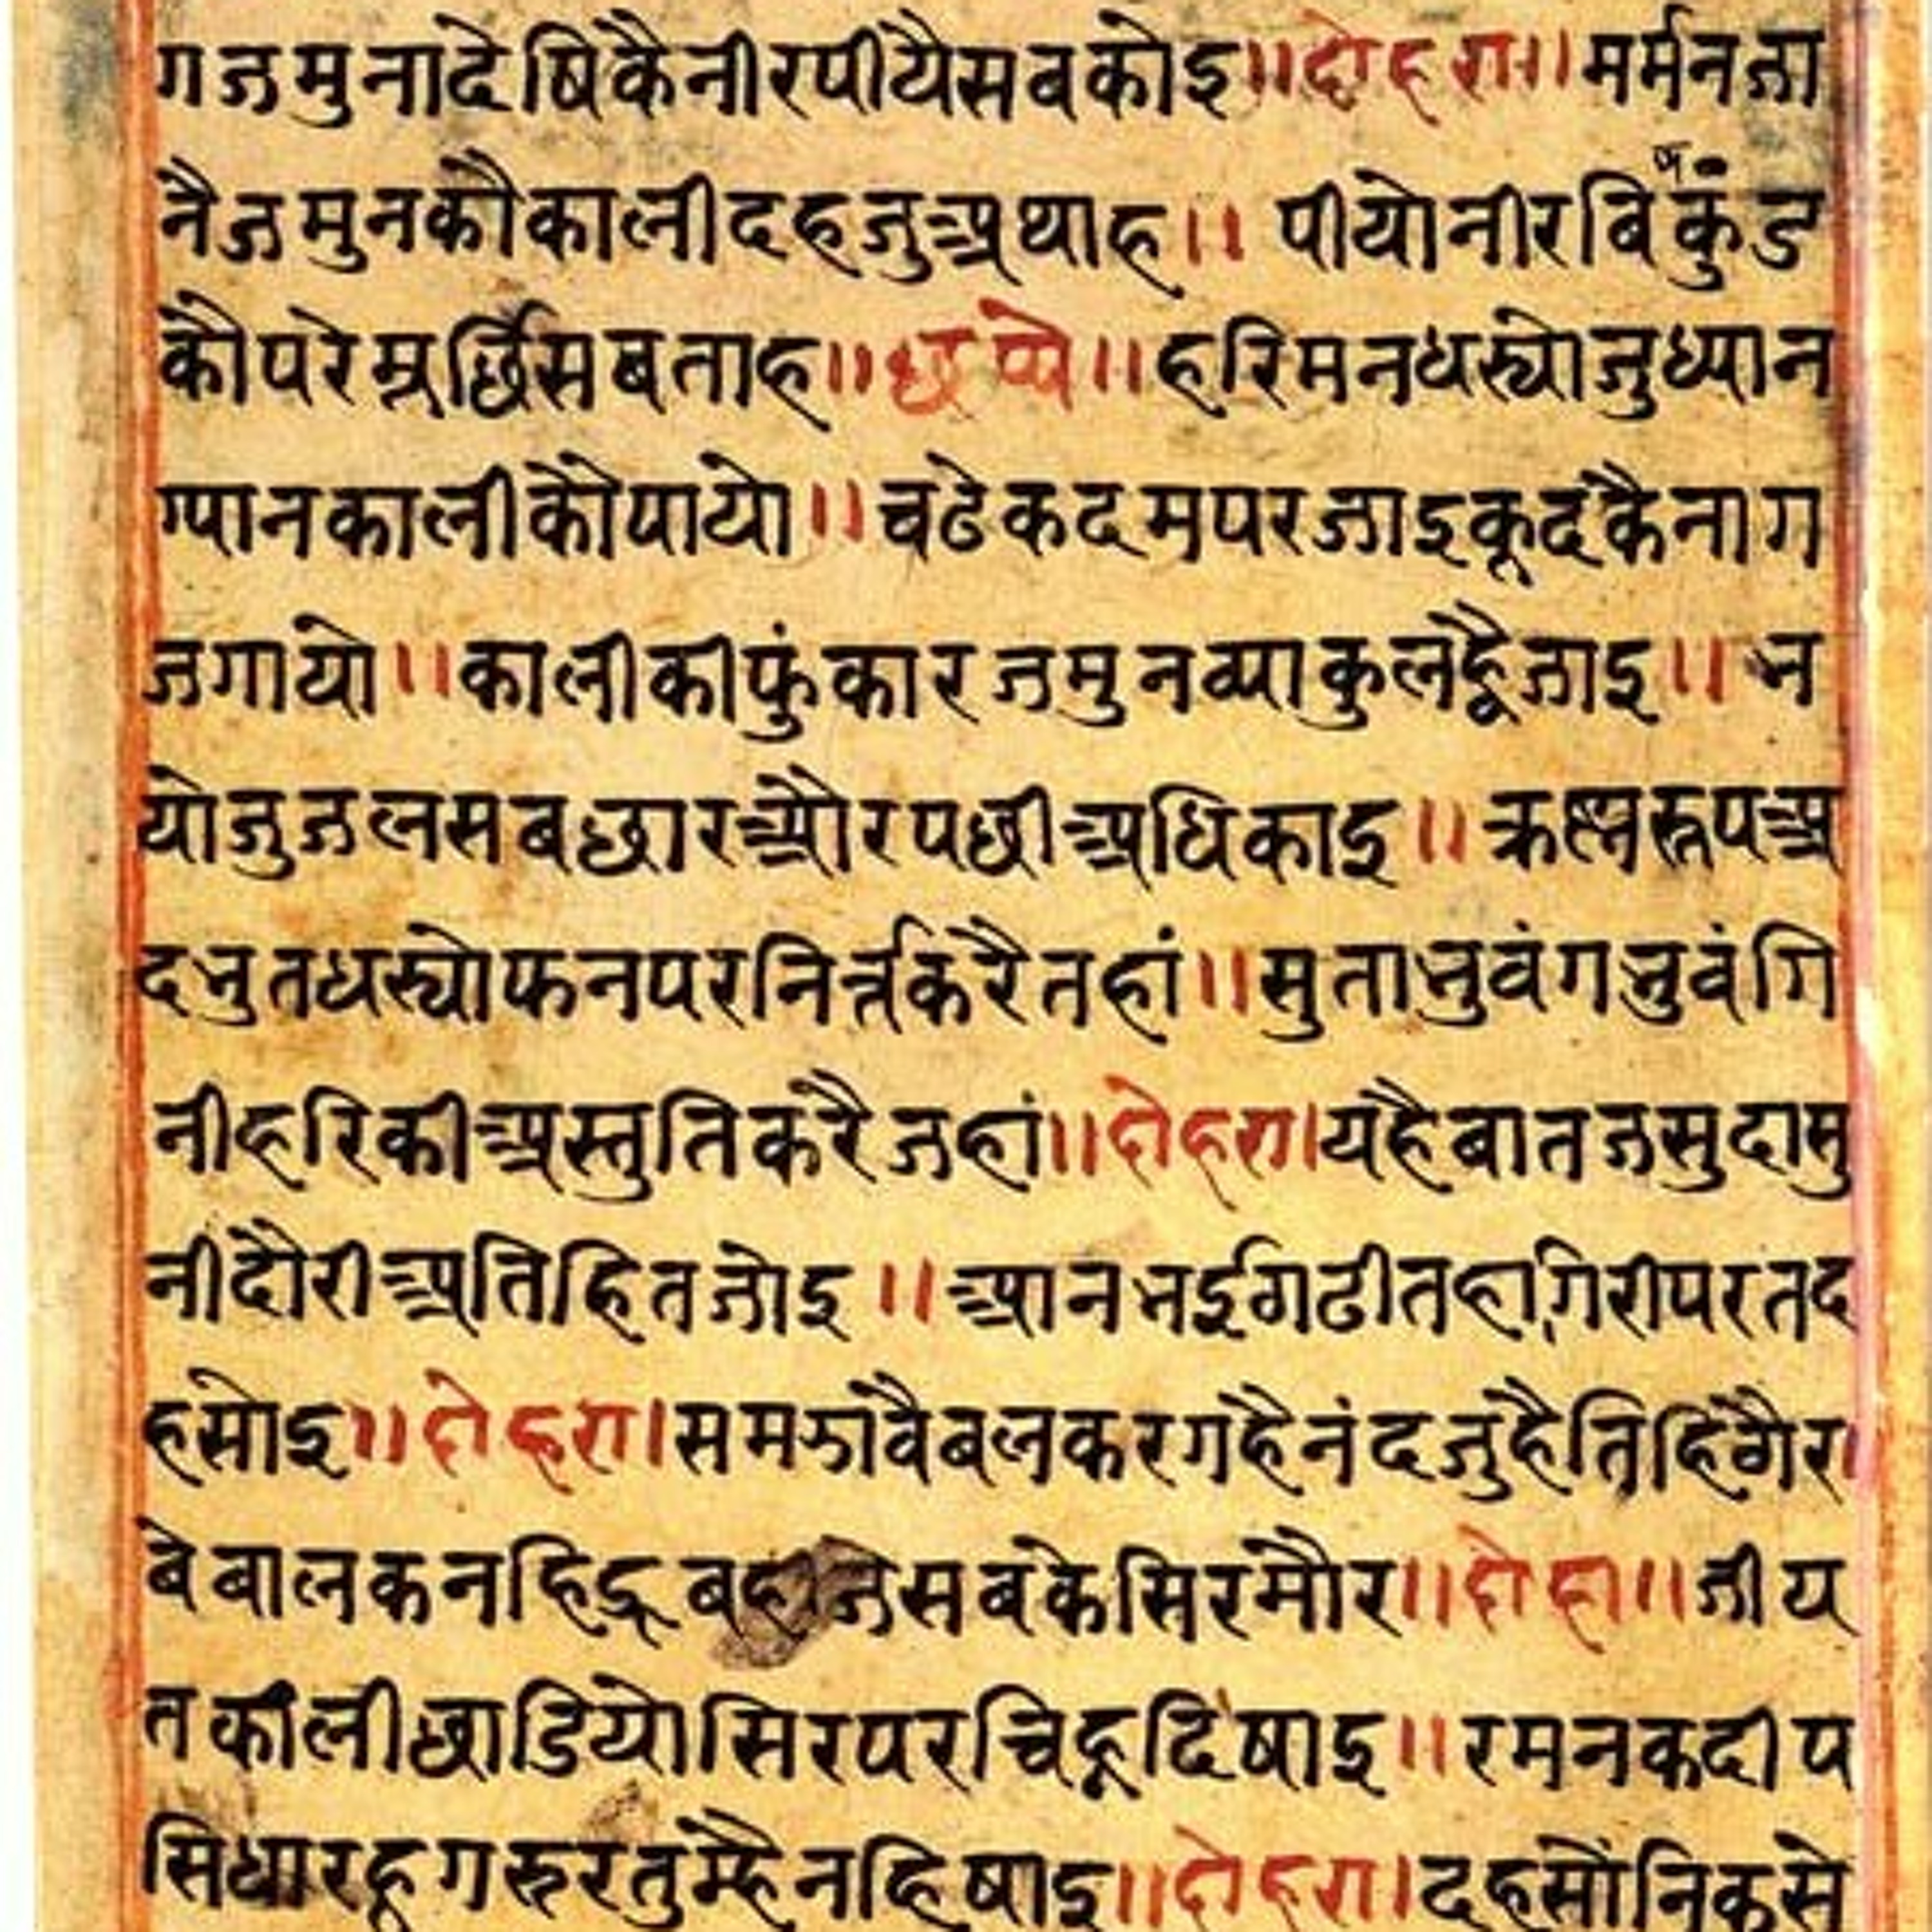 गजमुनादेषिकैनीरपीयैसबकोइ॥दोहरा॥मर्मनजा
नैजमुनकौकालीदहजुअथाह॥ पीयोनीरबिकुंड
कौपरेमूर्छिसबताह॥छप्पे॥हरिमनधस्योजुध्यान
ग्यानकालीकौपायो॥चढेकदमपरजाइकूदकैनाग
जगायो॥कालीकीफुंकारजमुनव्याकुलह्वैजाइ॥न
योजुजलसबछारऔरपछीअधिकाइ॥क्रष्नरूपअ
दभुतधस्योफनपरनिर्त्तकरैतहां॥सुताभुवंगभुवंगि
नीहरिकीअस्तुतिकरैजहां॥दोहरा।यहैबातजसुदासु
नीदौरीअतिहितजोइ॥आनभईगढीतहा,गिरीपरतद
हसोइ॥दोहरा।समझावैबलकरगहैनंदजुहैतिहिंगैर
बेबालकनहिडूबहीजसबकेसिरमौर॥दोहा॥जीय
तकालीछाडियोसिरपरचिह्नदिषाइ॥रमनकदीप
सिधारहूगरुरतुम्हैनहिषाइ॥दोहरा।दहसौनिकसे